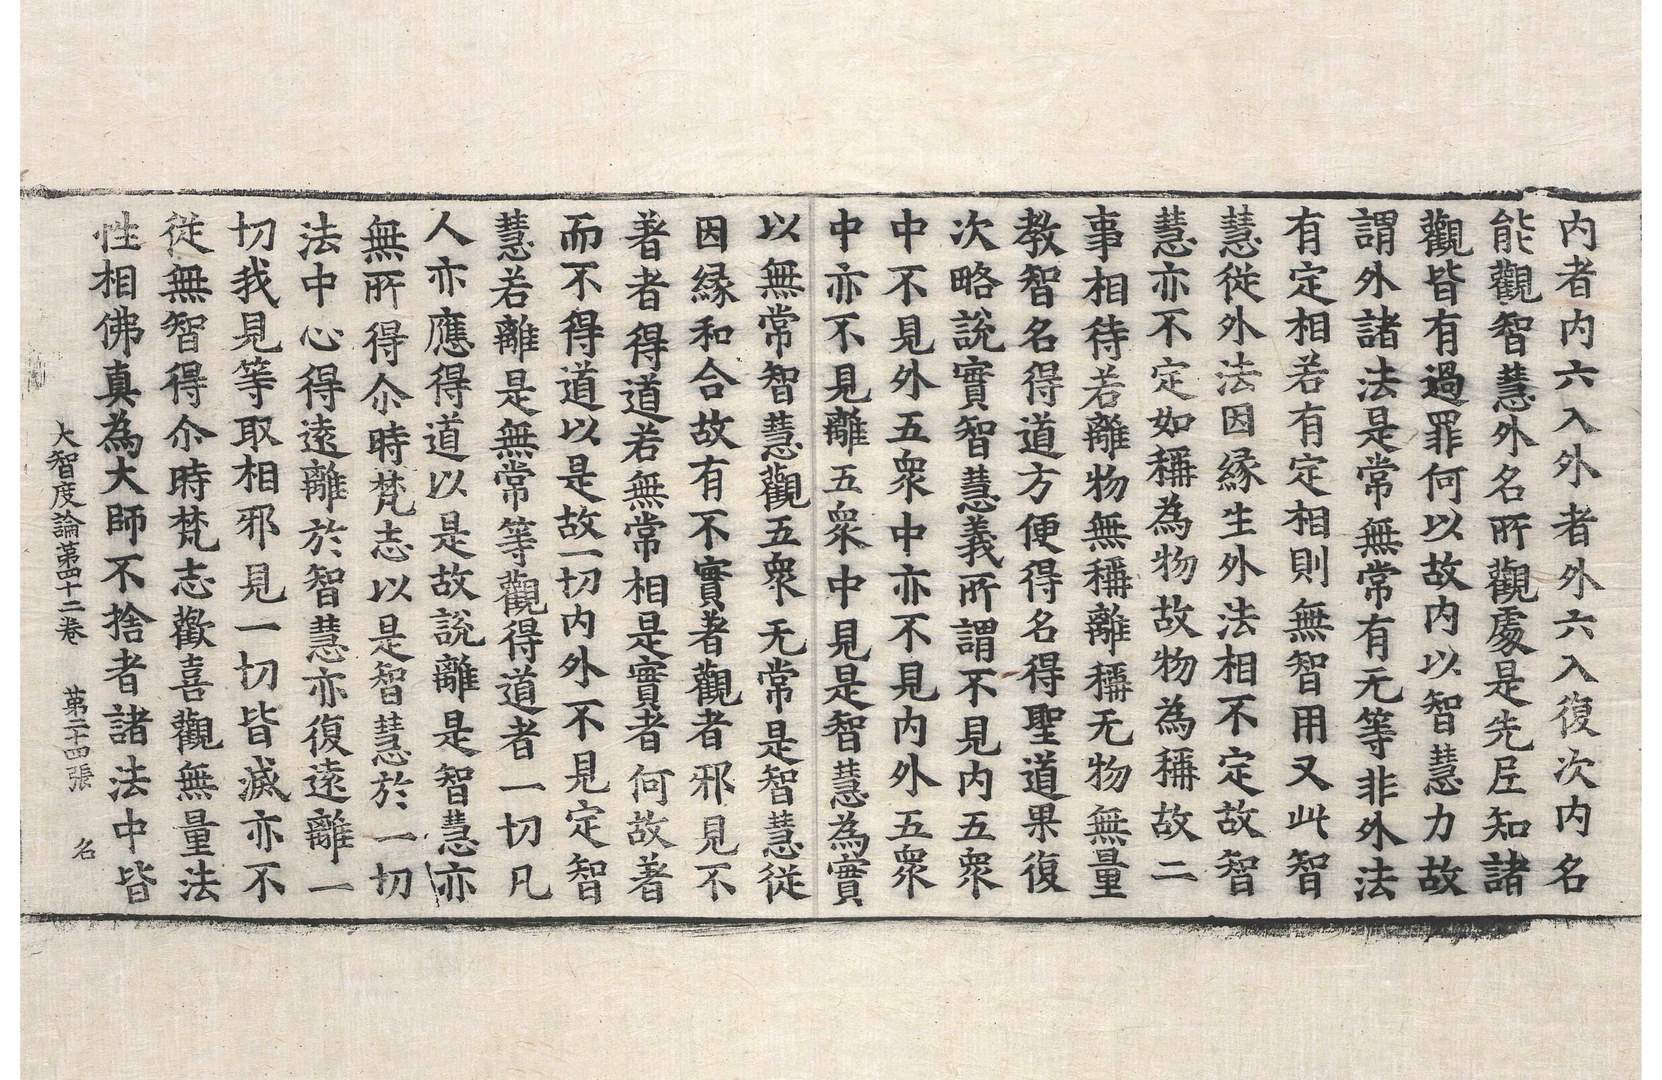 内者内六入外者外六入復次内名
能觀智慧外名所觀處是先尼知諸
觀皆有過罪何以故内以智慧力故
謂外諸法是常無常有无等非外法
有定相若有定相則無智用又此智
慧從外法因緣生外法相不定故智
慧亦不定如稱為物故物為稱故二
事相待若離物無稱離稱无物無量
教智名得道方便得名得聖道果復
次略說實智慧義所謂不見内五衆
中不見外五衆中亦不見内外五衆
中亦不見離五衆中見是智慧為實
以無常智慧觀五衆无常是智慧從
因緣和合故有不實著觀者邪見不
著者得道若無常相是實者何故著
而不得道以是故一切内外不見定智
慧若離是無常等觀得道者一切凡
人亦應得道以是故說離是智慧亦
無所得尒時梵志以是智慧於一切
法中心得遠離於智慧亦復遠離一
切我見等取相邪見一切皆滅亦不
從無智得尒時梵志歡喜觀無量法
性相佛真為大師不捨者諸法中皆
大智度論第四十二卷 第二十四張 名